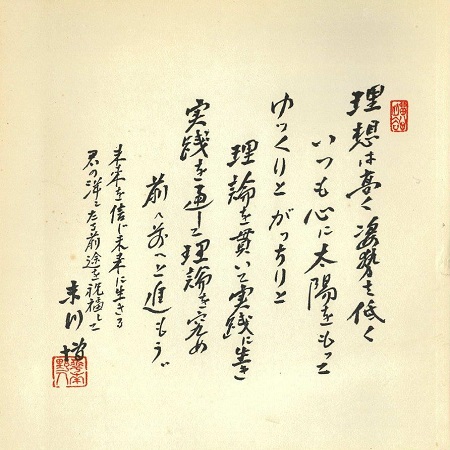 理想は高く姿勢を低く
いつも心に太陽をもって
ゆっくりと がっちりと
理論を貫いて実践に生き
実践を通して理論を究め
前へ前へと進もう
未来を信じ未来に生きる
君の洋々たる前途を祝福して
末川博